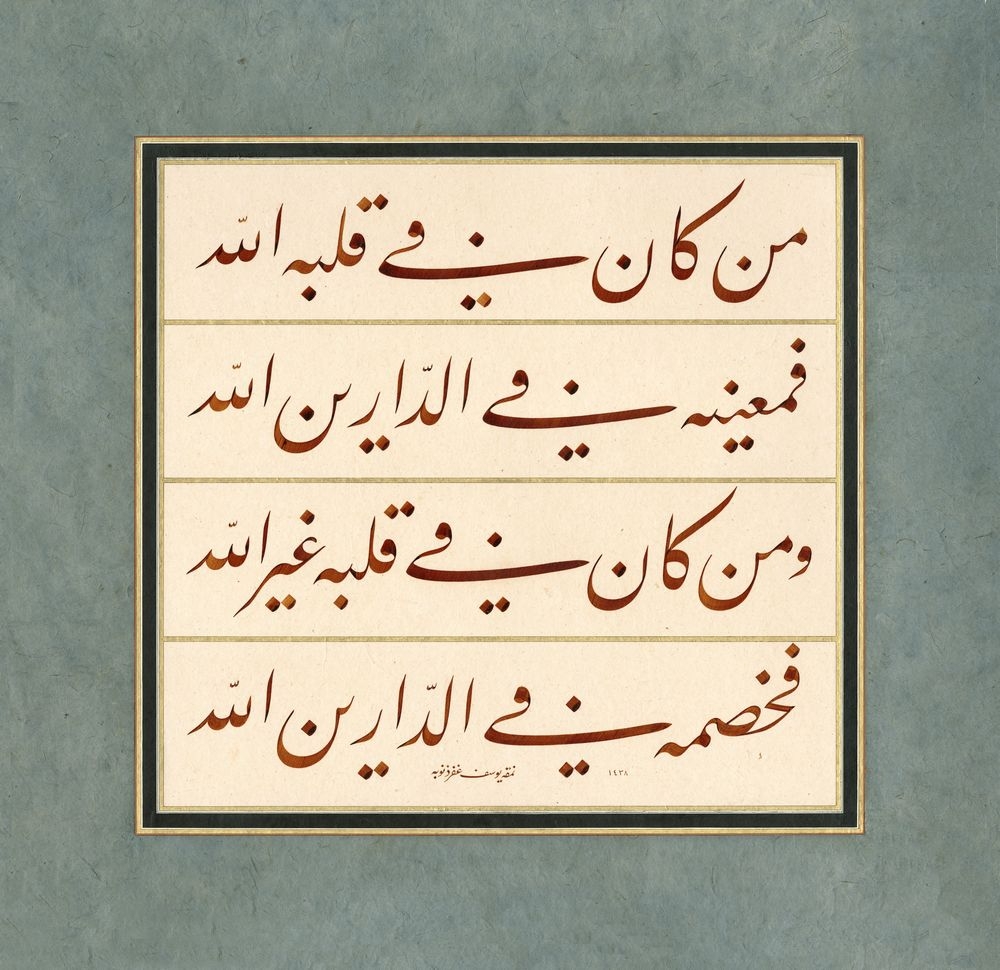 من كان في قلبه الله
فمعينه في الدّارين الله
ومن كان في قلبه غير الله
فخصمه في الدّارين الله
نمقه يوسف غفر ذنوبه ١٤٣٨